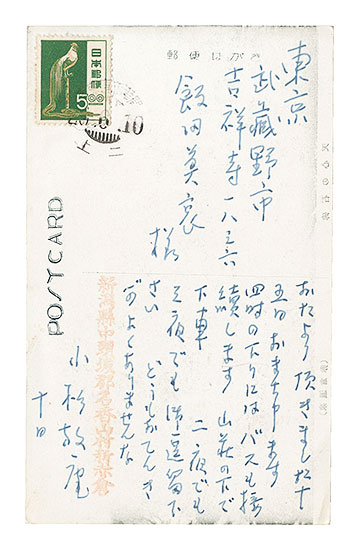 日本郵便
5.00
郵便はがき
東京
武蔵野市
吉祥寺一八三六
飯田莫哀
様
10
POSTCARD
おたより頂きました十
五日おまち申ます
四時の下りにはバスも接
続します 山荘の下で
下車 二夜でも
三夜でも御逗留下
さい どうもおてんき
がよくありませんな
新潟縣中頸城郡名香山村新赤倉
小杉放庵
十日